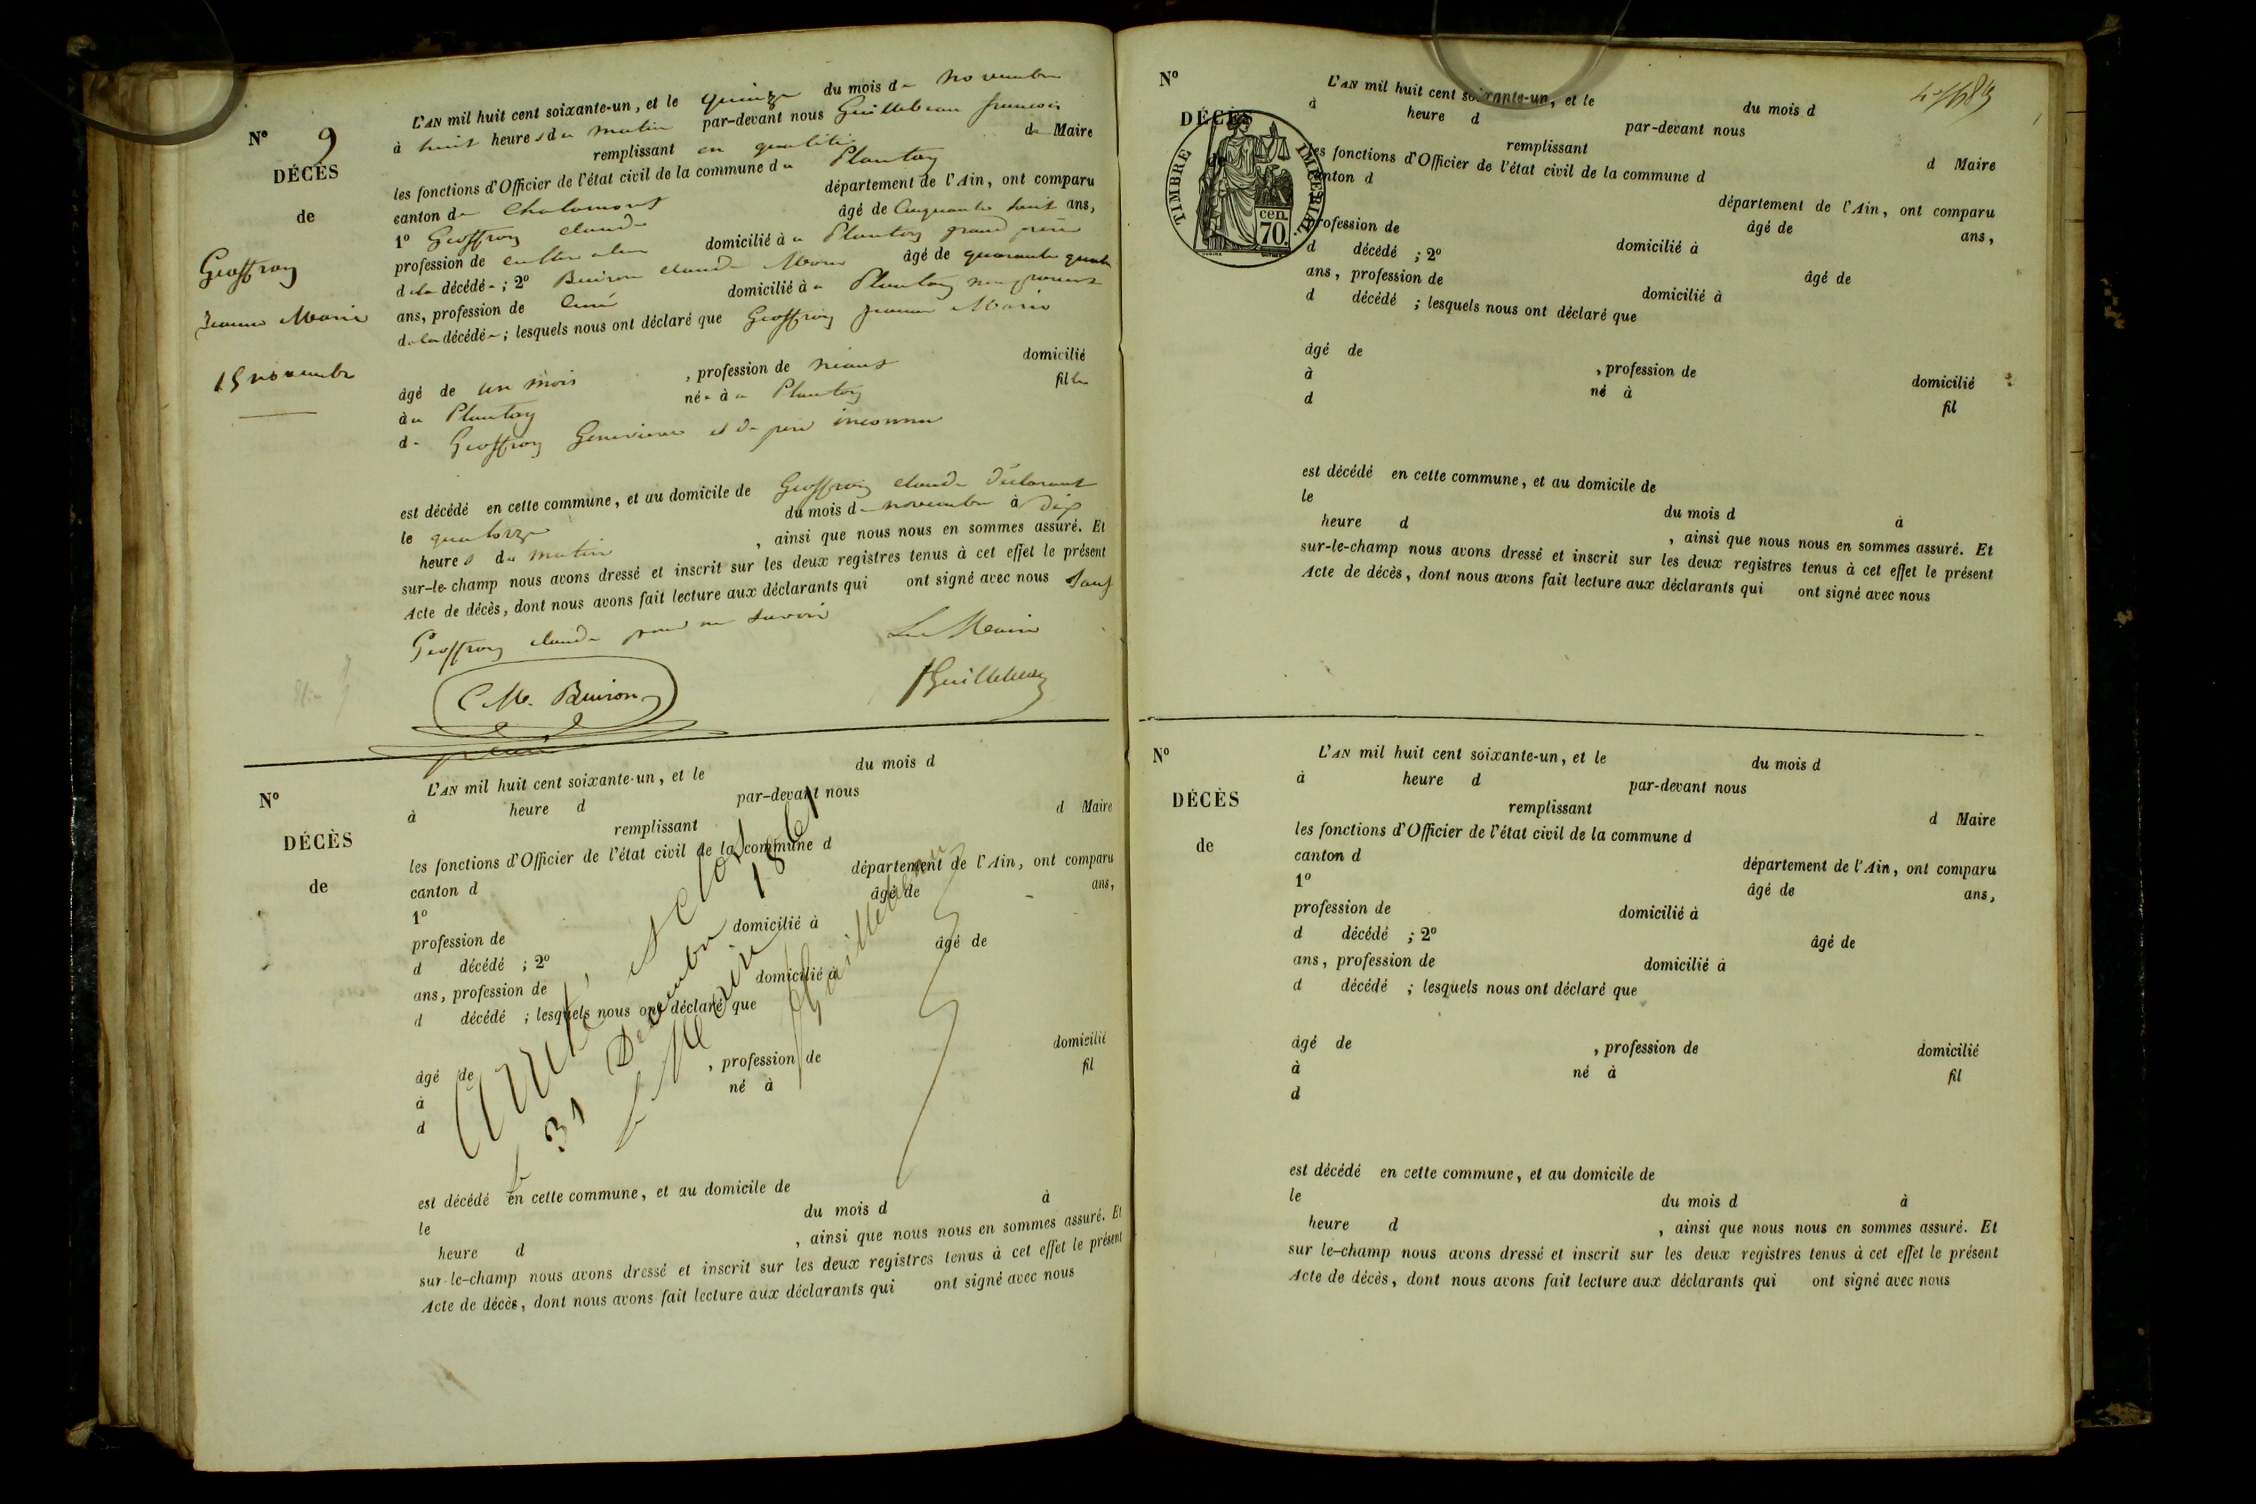 N° 9
DÉCÈS
de
Geoffray
Jeanne Marie
15 novembre
L'AN mil huit cent soixante-un, et le quinze du mois de novembre
à huit heures du matin par-devant nous Guillebeau francois
remplissant en qualité de Maire
les fonctions d'Officier de l'état civil de la commune du Plantay
canton de Chalamont département de l'Ain, ont comparu
1° Geoffray claude âgé de Cinquante huit ans,
profession de cultivateur domicilié à u Plantay grand père
de la décédée; 2° Buiron claude Marie âgé de quarante quatre
ans, profession de Curé domicilié à u Plantay non parent
de la décédée; lesquels nous ont déclaré que Geoffray jeanne Marie
âgé de un mois, profession de néant domicilié
à u Plantay née à u Plantay fille
de Geoffray Genevieve et de pere inconnu
est décédé en cette commune, et au domicile de Geoffray claude déclarant
le quatorze du mois de novembre à dix
heures du matin, ainsi que nous nous en sommes assuré. Et
sur-le-champ nous avons dressé et inscrit sur les deux registres tenus à cet effet le présent
Acte de décès, dont nous avons fait lecture aux déclarants qui ont signé avec nous Sauf
Geoffray claude pour ne savoir Le Maire
C. M. Buiron Guillebeau
N°
DÉCÈS
de
L'AN mil huit cent soixante-un, et le du mois d
à heure d par-devant nous
remplissant d Maire
les fonctions d'Officier de l'état civil de la commune d
canton d département de l'Ain, ont comparu
1° âgé de ans,
profession de domicilié à
d décédé ; 2° âgé de
ans, profession de domicilié à
d décédé ; lesquels nous ont déclaré que
âgé de , profession de domicilié
à né à fil
d
est décédé en cette commune, et au domicile de
le du mois d à
heure d , ainsi que nous nous en sommes assuré. Et
sur-le-champ nous avons dressé et inscrit sur les deux registres tenus à cet effet le présent
Acte de décès, dont nous avons fait lecture aux déclarants qui ont signé avec nous
Arrêté et clos
le 31 Decembre 1861
le Maire
Guillebeau
N°
DÉCÈS
de
TIMBRE IMPÉRIAL.
cen.
70.
L'AN mil huit cent soixante-un, et le du mois d
à heure d par-devant nous
remplissant d Maire
les fonctions d'Officier de l'état civil de la commune d
canton d département de l'Ain, ont comparu
âgé de ans,
profession de domicilié à
d décédé ; 2° âgé de
ans, profession de domicilié à
d décédé ; lesquels nous ont déclaré que
âgé de , profession de domicilié
à né à fil
d
est décédé en cette commune, et au domicile de
le du mois d à
heure d , ainsi que nous nous en sommes assuré. Et
sur-le-champ nous avons dressé et inscrit sur les deux registres tenus à cet effet le présent
Acte de décès, dont nous avons fait lecture aux déclarants qui ont signé avec nous
N°
DÉCÈS
de
L'AN mil huit cent soixante-un, et le du mois d
à heure d par-devant nous
remplissant d Maire
les fonctions d'Officier de l'état civil de la commune d
canton d département de l'Ain, ont comparu
1° âgé de ans,
profession de domicilié à
d décédé ; 2° âgé de
ans, profession de domicilié à
d décédé ; lesquels nous ont déclaré que
âgé de , profession de domicilié
à né à fil
d
est décédé en cette commune, et au domicile de
le du mois d à
heure d , ainsi que nous nous en sommes assuré. Et
sur le-champ nous avons dressé et inscrit sur les deux registres tenus à cet effet le présent
Acte de décès, dont nous avons fait lecture aux déclarants qui ont signé avec nous